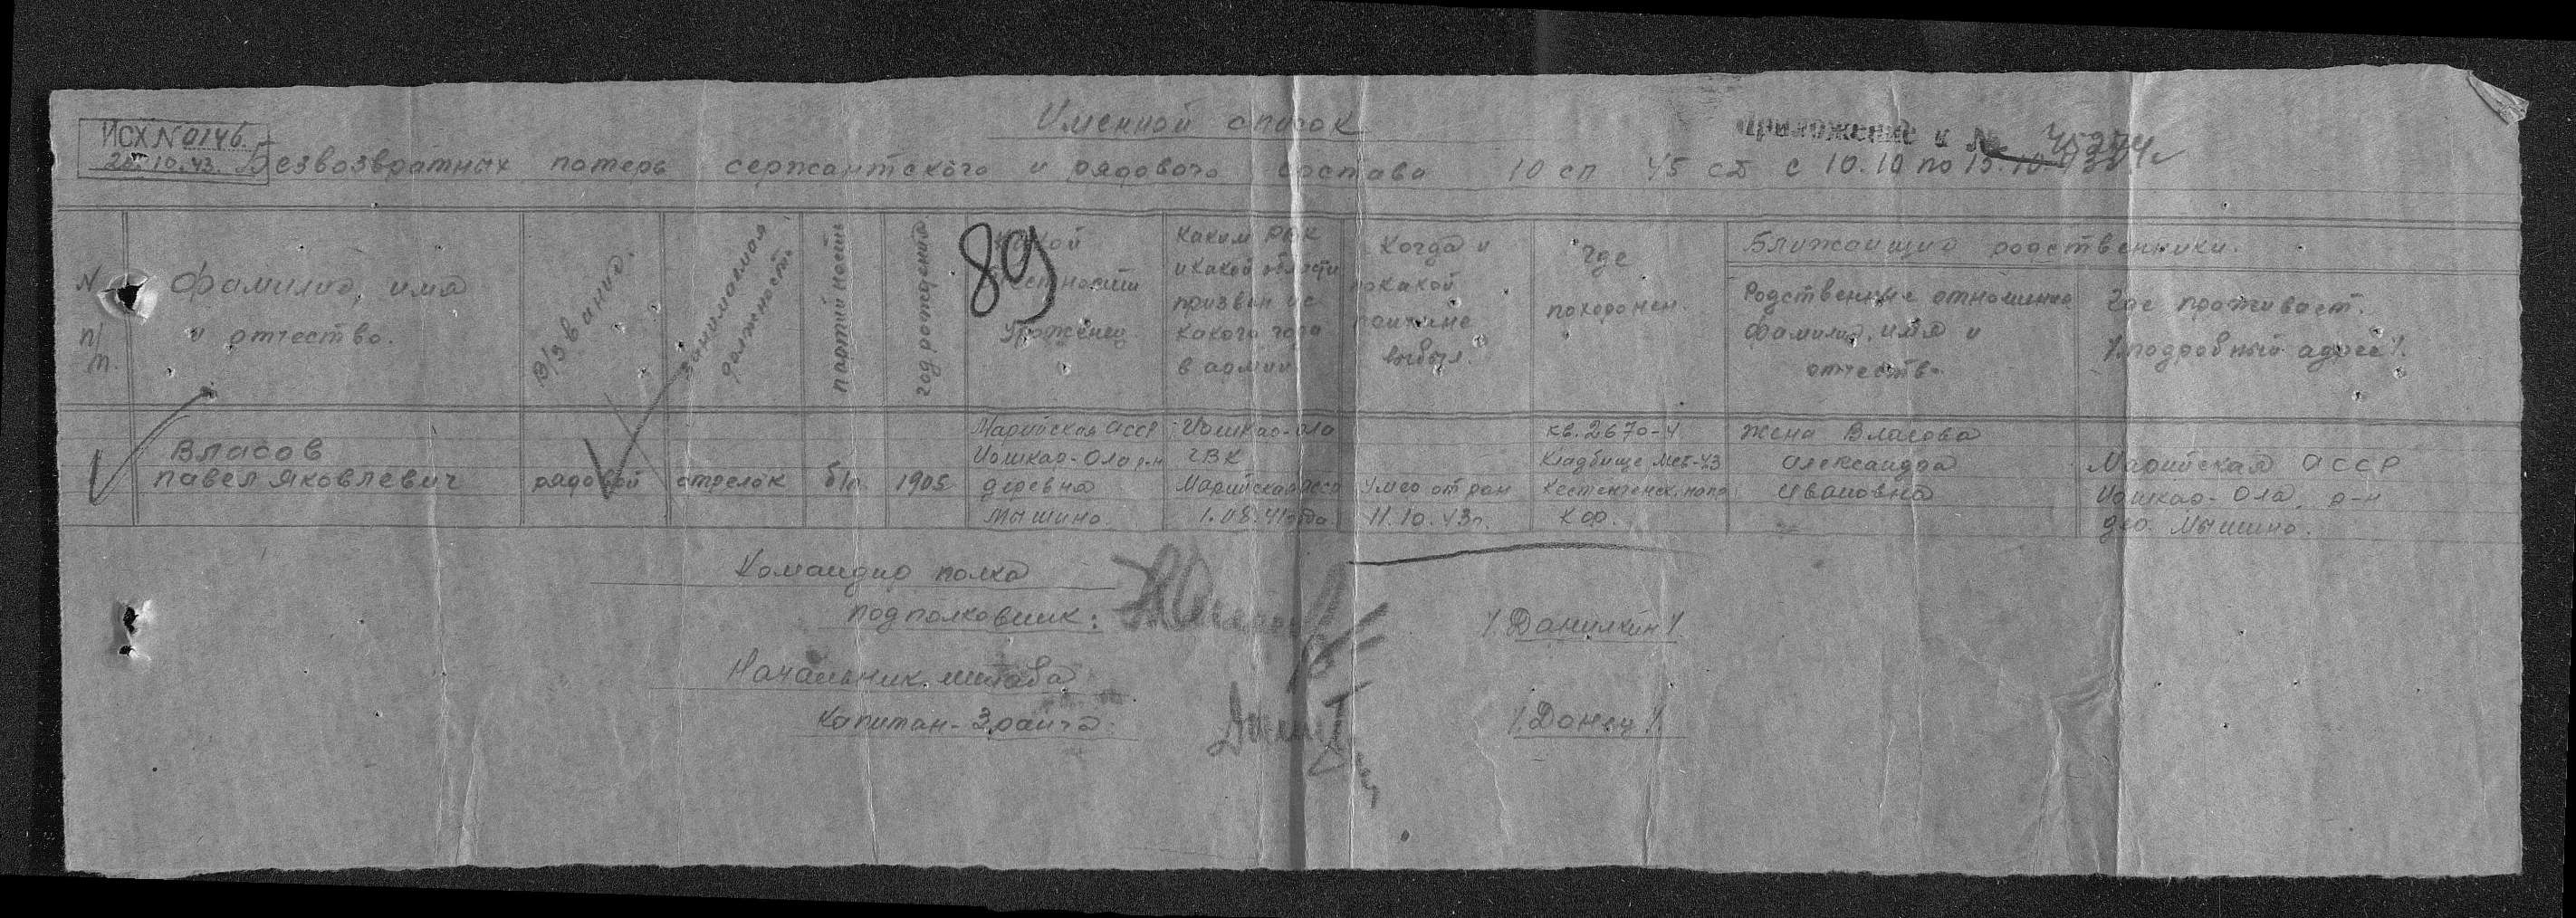 Именной список
ИСХ N 0146.
25.10.43.
приложение к № 45274
Безвозвратных потерь сержантского и рядового состава 10 сп 45 сд с 10.10 по 15.10
89
N п/п.
Фамилия, имя
и отчество.
в/звание.
занимаемая
должность.
партийность
год рождения
какой
местности
Уроженец.
каким РВК
и какой области
призван и с
какого года
в армии
Когда и
по какой
причине
выбыл.
Где
похоронен.
Ближайшие родственники.
Родственные отношения
фамилия, имя и
отчество.
Где проживает.
/подробный адрес/.
1
Власов
Павел Яковлевич
рядовой
стрелок
б/п.
1905
Марийская АССР
Йошкар-Ола р-н
деревня
Мышино.
Йошкар-Ола
ГВК
Марийская АССР
1.08.41 года
Умер от ран
11.10.43г.
кв. 2670-4
Кладбище МСБ-43
Кестеньгск. напр.
Кф.
жена Власова
Александра
Ивановна
Марийская АССР
Йошкар-Ола, р-н
дер. Мышино.
Командир полка
подполковник:
/Данилкин/.
Начальник штаба
Капитан
/Донец/.